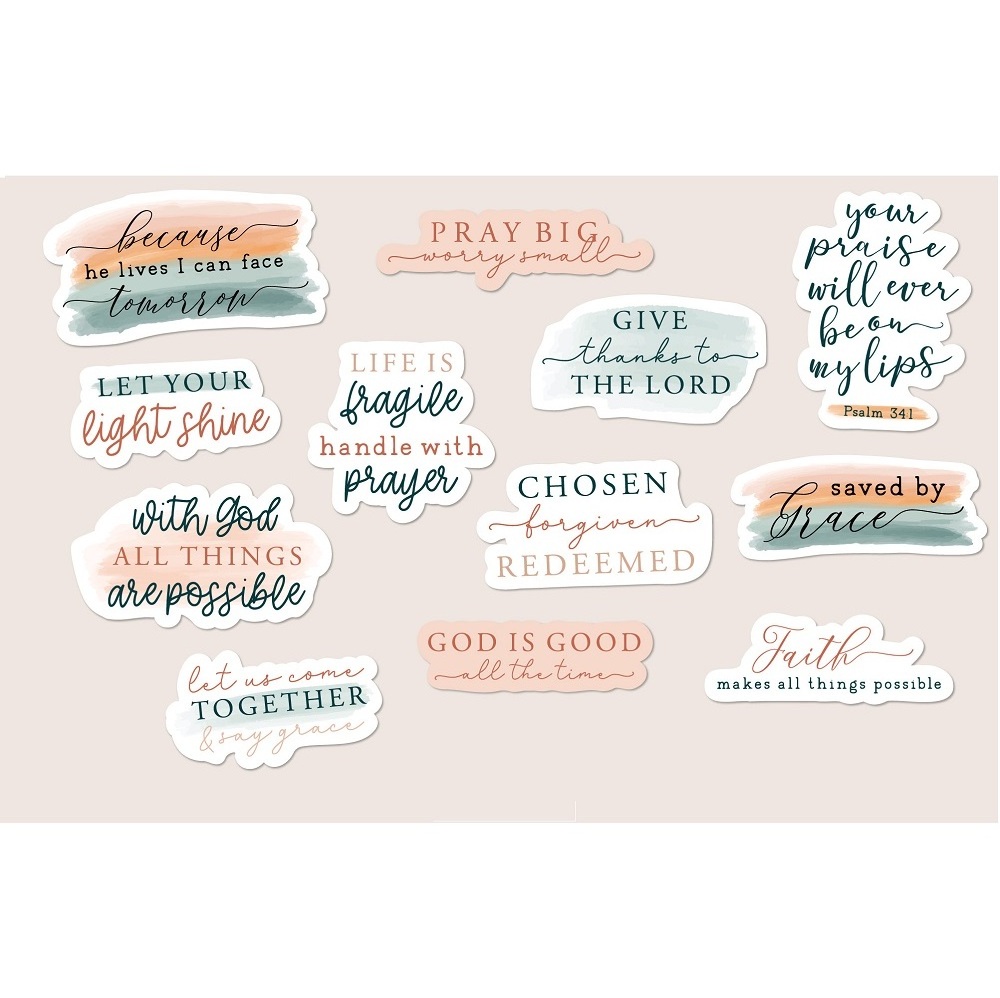 because
he lives I can face
tomorrow
PRAY BIG
worry small
your
praise
will ever
be on
my lips
Psalm 34:1
GIVE
thanks to
THE LORD
LET YOUR
light shine
LIFE IS
fragile
handle with
prayer
CHOSEN
forgiven
REDEEMED
saved by
Grace
with God
ALL THINGS
are possible
GOD IS GOOD
all the time
Faith
makes all things possible
let us come
TOGETHER
& say grace